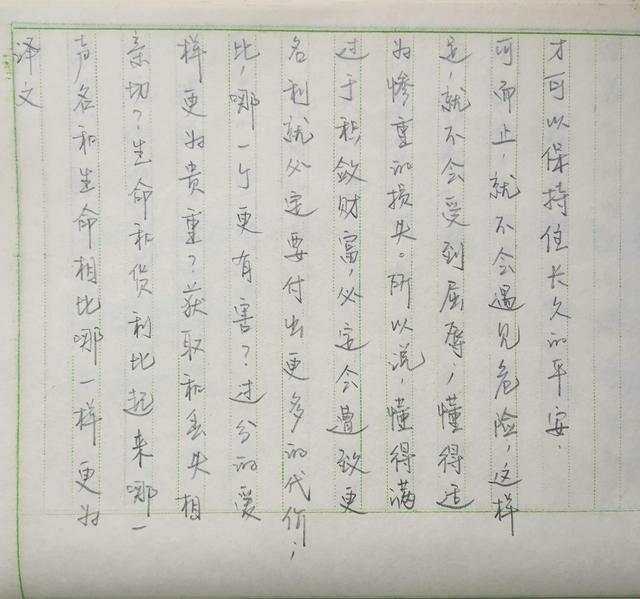 译文
声名和生命相比哪一样更为
亲切?生命和货利比起来哪一
样更为贵重?获取和丢失相
比,哪一个更有害?过分的爱
名利就必定要付出更多的代价;
过于积敛财富,必定会遭致更
为惨重的损失。所以说,懂得满
足,就不会受到屈辱;懂得适
可而止,就不会遇见危险,这样
才可以保持住长久的平安.